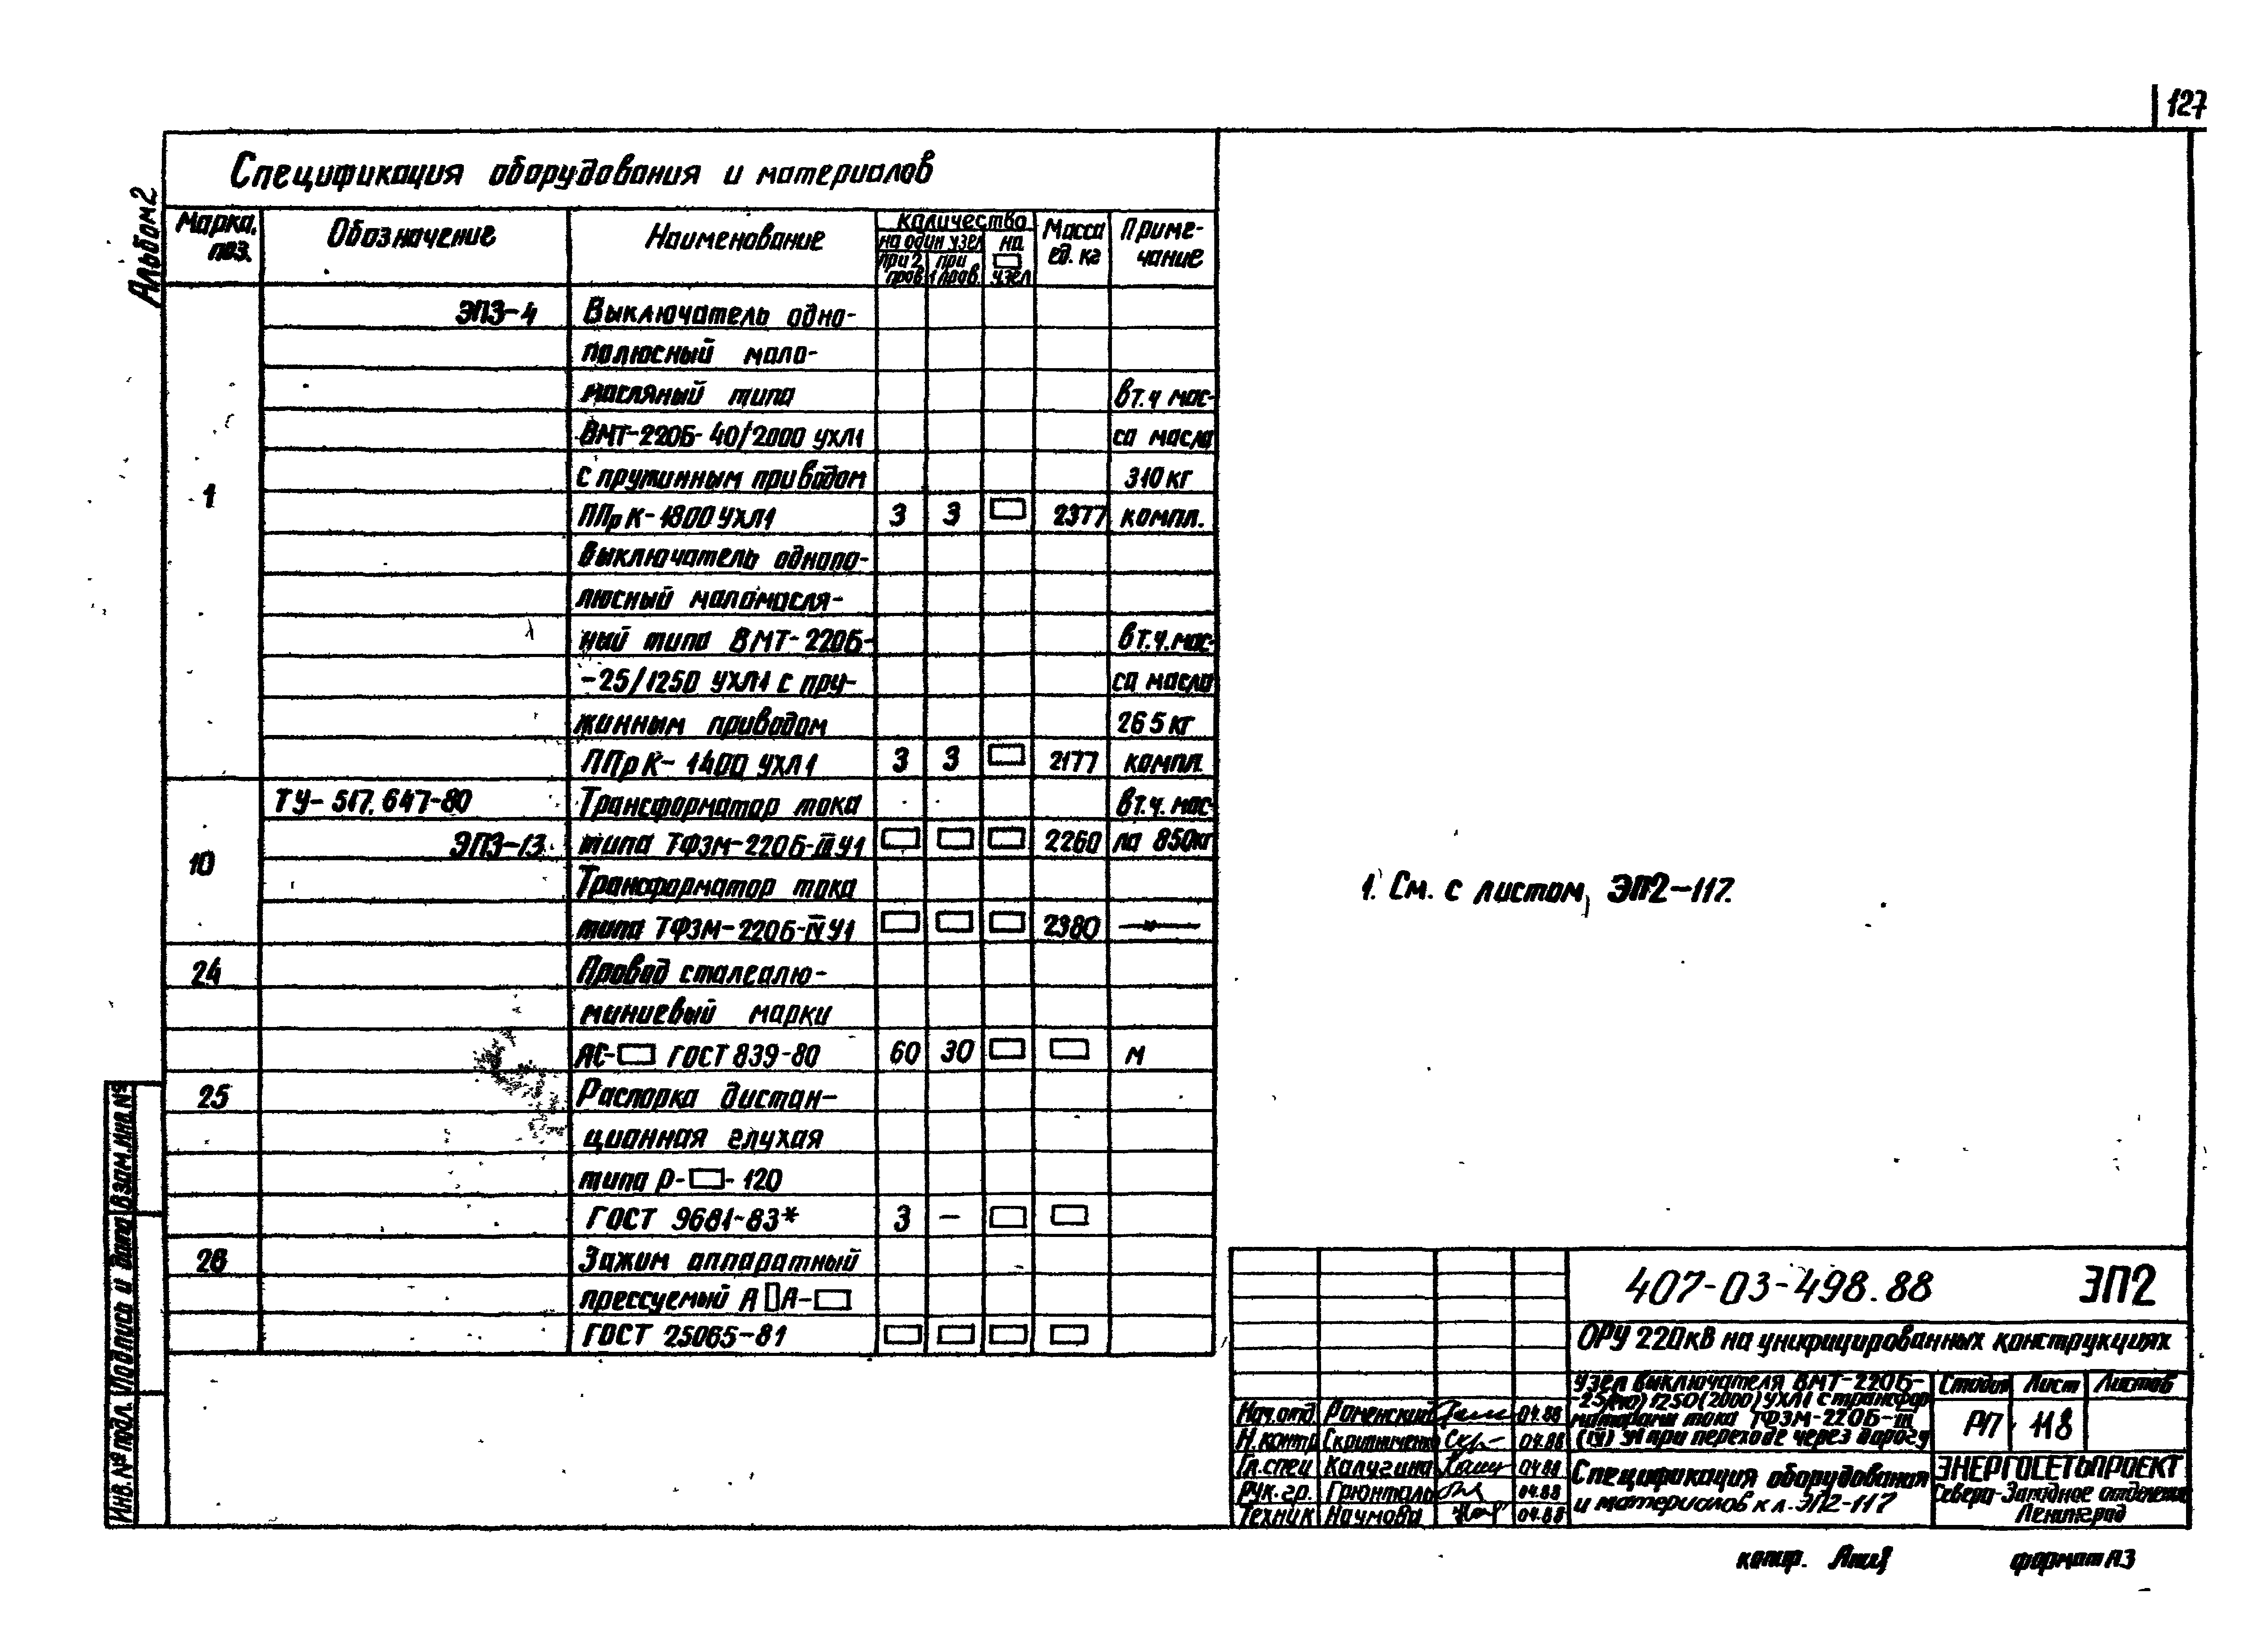 127
Альбом 2
Спецификация оборудования и материалов
Марка, поз.
Обозначение
Наименование
Количество
на один узел
при 2 пров.
при 1 пров.
на □ узел
Масса ед. кг
Примечание
1
ЭП3-4 Выключатель одно-
полюсный мало-
масляный типа в т.ч мас-
ВМТ-220Б-40/2000 УХЛ1 са масла
с пружинным приводом 310 кг
ППрК-1800 УХЛ1 3 3 □ 2377 компл.
Выключатель однопо-
люсный маломасля-
ный типа ВМТ-220Б- в т.ч. мас-
-25/1250 УХЛ1 с пру- са масла
жинным приводом 265 кг
ППрК-1400 УХЛ1 3 3 □ 2177 компл.
10
ТУ-517.647-80 Трансформатор тока в т.ч. мас-
ЭП3-13 типа ТФЗМ-220Б-III У1 □ □ □ 2260 ла 850кг
Трансформатор тока
типа ТФЗМ-220Б-IV У1 □ □ □ 2380 —"—
24 Провод сталеалю-
миниевый марки
АС-□ ГОСТ 839-80 60 30 □ □ м
25 Распорка дистан-
ционная глухая
типа Р-□-120
ГОСТ 9681-83* 3 - □ □
26 Зажим аппаратный
прессуемый А□А-□
ГОСТ 25065-81 □ □ □ □
1. См. с листом ЭП2-117.
407-03-498.88 ЭП2
ОРУ 220кВ на унифицированных конструкциях
Узел выключателя ВМТ-220Б-
25(40)/1250(2000) УХЛ1 с трансфор-
маторами тока ТФЗМ-220Б-III
(IV) У1 при переходе через дорогу
Стадия Лист Листов
РП 118
Нач.отд. Роменский 04.88
Н.контр Скрипниченко 04.88
Гл.спец Калугина 04.88
Рук.гр. Грюнталь 04.88
Техник Наумова 04.88
Спецификация оборудования
и материалов к л. ЭП2-117
ЭНЕРГОСЕТЬПРОЕКТ
Северо-Западное отделение
Ленинград
копир.
формат А3
Инв. № подл. Подпись и дата Взам. инв. №